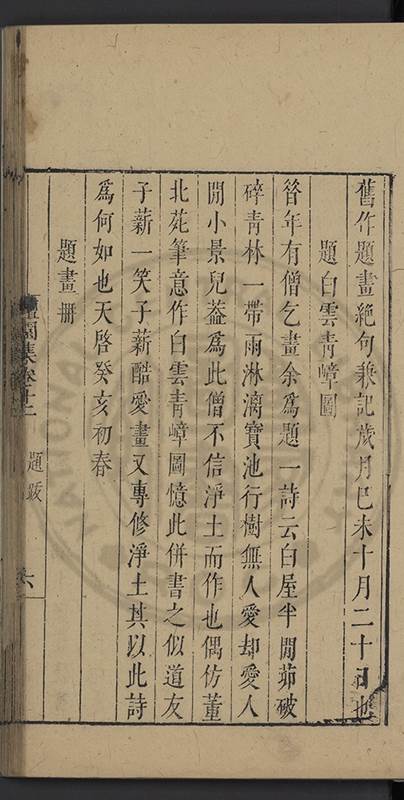 舊作題畫絕句兼記歲月己未十月二十日也
題白雲青嶂圖
昝年有僧乞畫余為題一詩云白屋半閒茆破
碎青林一帶雨淋漓寶池行樹無人愛却愛人
閒小景兒葢為此僧不信淨土而作也偶仿董
北苑筆意作白雲青嶂圖憶此併書之似道友
子薪一笑子薪酷愛畫又專修淨土其以此詩
為何如也天啓癸亥初春
題畫冊
集卷十二
題跋
六